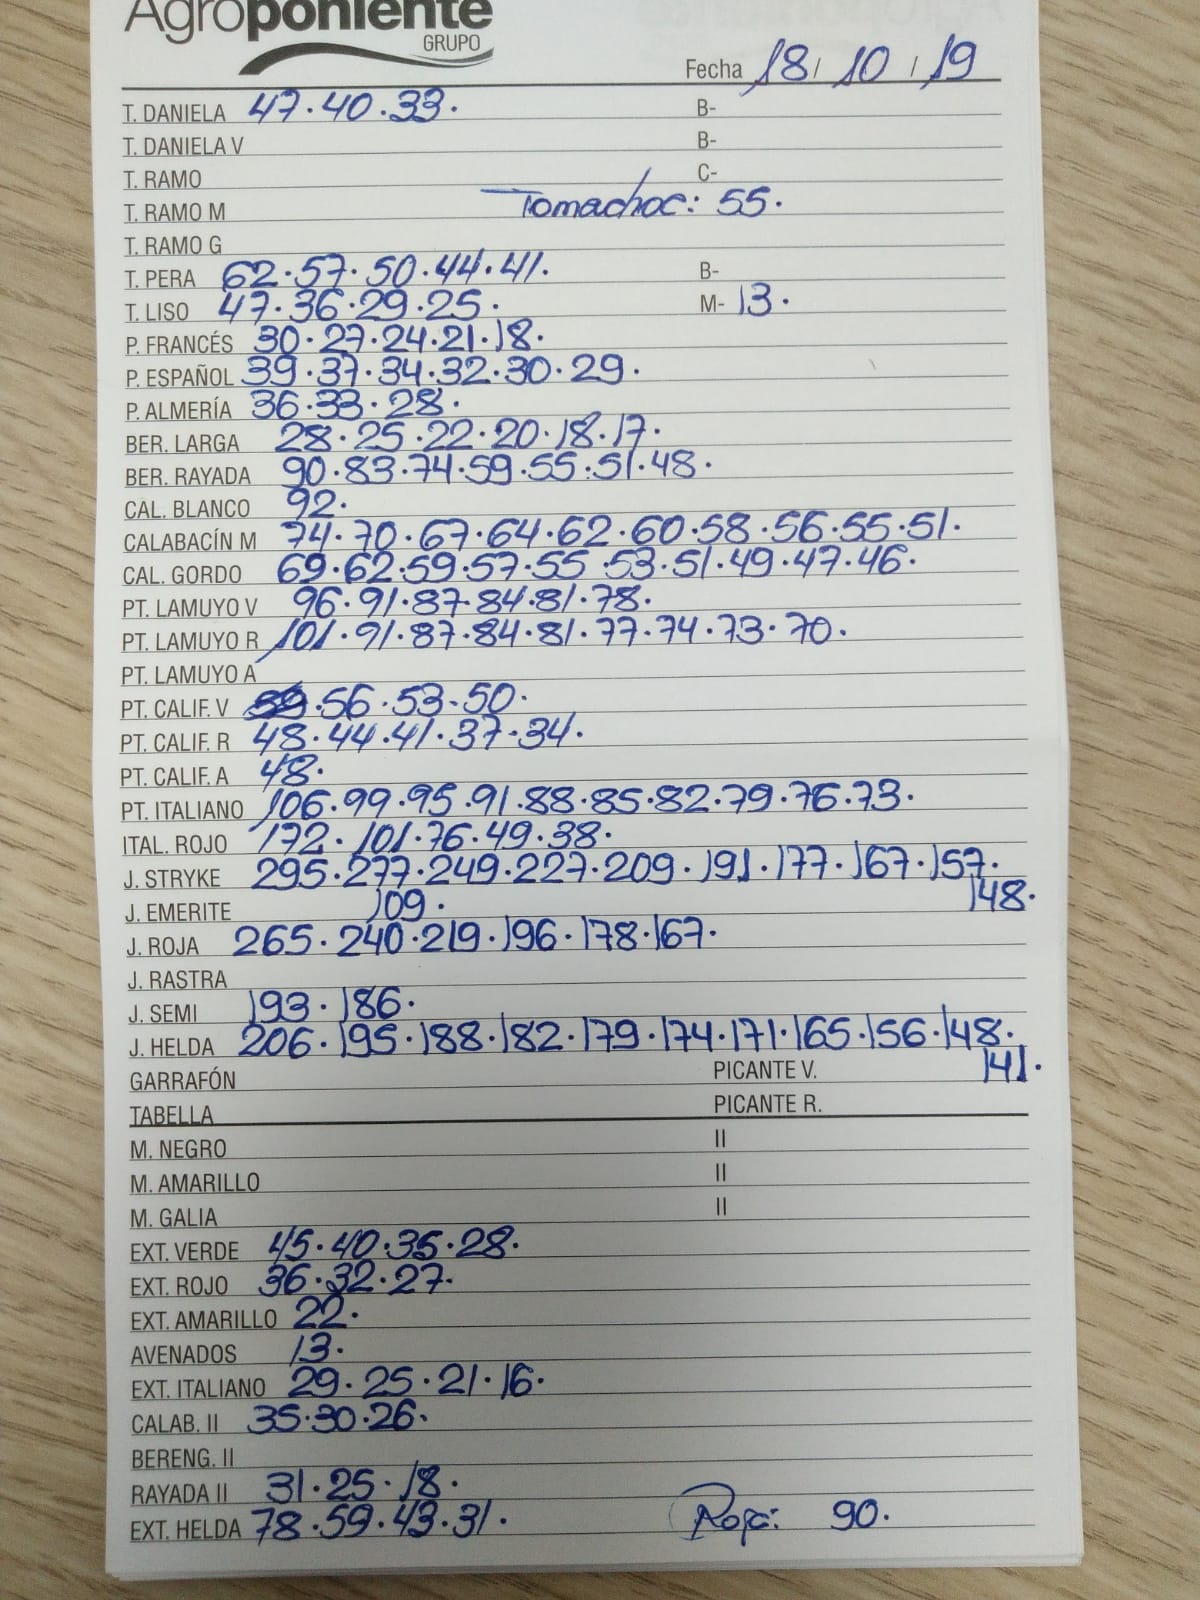 Agroponiente
GRUPO
Fecha 18/ 10 / 19
T. DANIELA 47·40·33· B-
T. DANIELA V B-
T. RAMO C-
T. RAMO M Tomachoc: 55.
T. RAMO G
T. PERA 62·57·50·44·41· B-
T. LISO 47·36·29·25· M- 13·
P. FRANCÉS 30·27·24·21·18·
P. ESPAÑOL 39·37·34·32·30·29·
P. ALMERÍA 36·33·28·
BER. LARGA 28·25·22·20·18·17·
BER. RAYADA 90·83·74·59·55·51·48·
CAL. BLANCO 92·
CALABACÍN M 74·70·67·64·62·60·58·56·55·51·
CAL. GORDO 69·62·59·57·55·53·51·49·47·46·
PT. LAMUYO V 96·91·87·84·81·78·
PT. LAMUYO R 101·91·87·84·81·77·74·73·70·
PT. LAMUYO A
PT. CALIF. V 59·56·53·50·
PT. CALIF. R 48·44·41·37·34·
PT. CALIF. A 48·
PT. ITALIANO 106·99·95·91·88·85·82·79·76·73·
ITAL. ROJO 172·101·76·49·38·
J. STRYKE 295·277·249·227·209·191·177·167·157·
J. EMERITE 109· 148·
J. ROJA 265·240·219·196·178·167·
J. RASTRA
J. SEMI 193·186·
J. HELDA 206·195·188·182·179·174·171·165·156·148·
GARRAFÓN PICANTE V. 141·
TABELLA PICANTE R.
M. NEGRO II
M. AMARILLO II
M. GALIA II
EXT. VERDE 45·40·35·28·
EXT. ROJO 36·32·27·
EXT. AMARILLO 22·
AVENADOS 13·
EXT. ITALIANO 29·25·21·16·
CALAB. II 35·30·26·
BERENG. II
RAYADA II 31·25·18·
EXT. HELDA 78·59·43·31· Roja: 90·